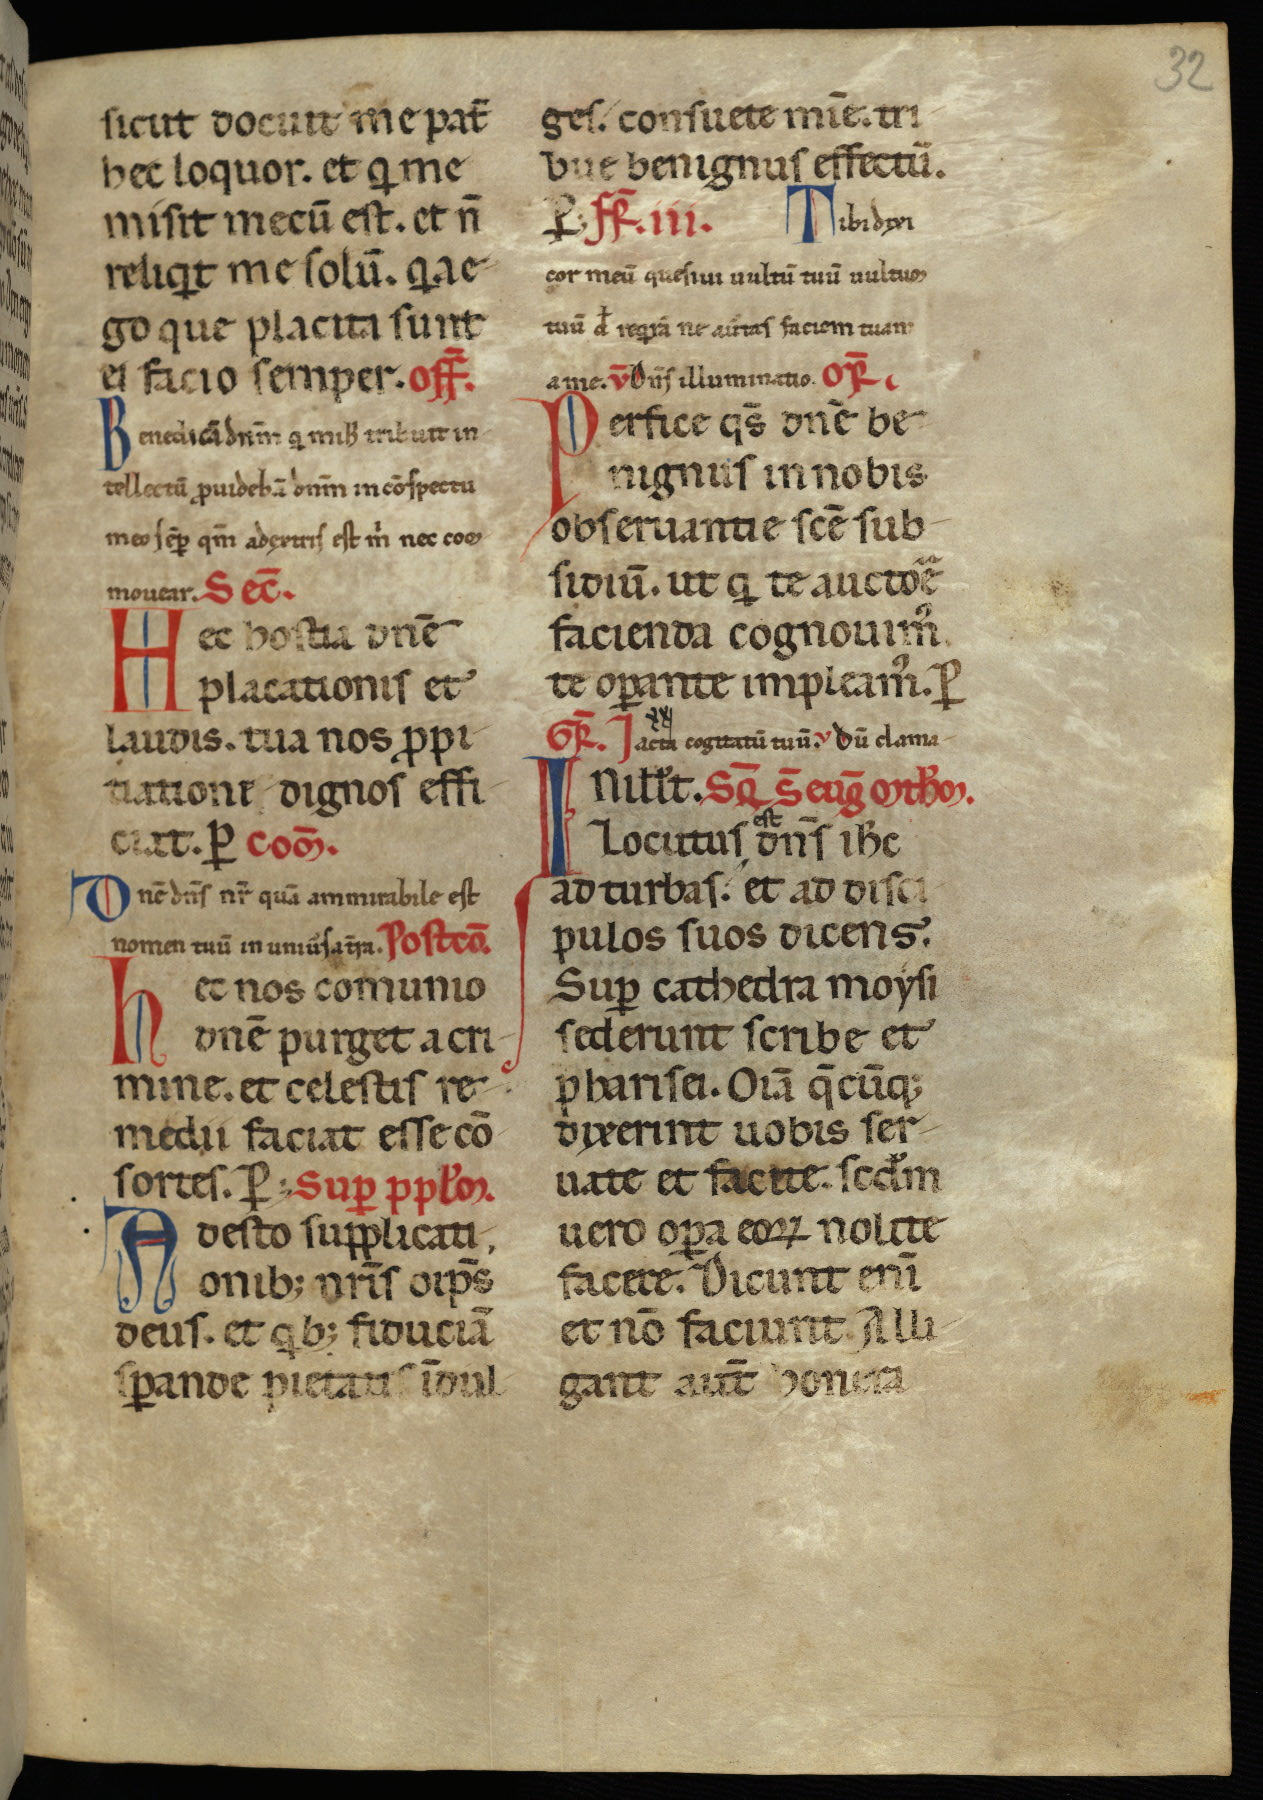 32
sicut docuit me pat̄
hec loquor. et q̇ me
misit mecū est. et n̄
reliqͥt me solū. q. ae-
go que placita sunt
ei facio semper. off̄.
Benedicā dn̄m q̇ mihi tribuit in-
tellectū ꝓuidebā dn̄m in cōspectu
meo sēꝑ qm̄ adextris est m̄ nec com-
mouear. Sec̄.
Hec hostia dn̄e
placationis et
laudis. tua nos ꝓpi-
tiatione dignos effi-
ciat. ꝑ com̄.
Dn̄e dn̄s nr̄ quā ammirabile est
nomen tuū in uniūsa tr̄a. Postcō.
hec nos comunio
dn̄e purget a cri-
mine. et celestis re-
medii faciat esse cō-
sortes. ꝑ; Suꝑ ppl̄om.
Adesto supplicati-
onibꝫ nr̄is oīps̄
deus. et qͥbꝫ fiduciā
sꝑande pietatis īdul-
ges. consuete mīe. tri-
bue benignus effectū.
ꝑ; fr̄. iii. Tibi dixi
cor meū quesiui uultū tuū uultum
tuū d̄ reqͥrā ne au̓tas faciem tuam
a me. v̄ Dn̄s illuminatio. or̄.
Perfice qs̄ dn̄e be-
nignus in nobis
obseruantie scē sub-
sidiū. ut q̄ te auctōe
facienda cognouimꝰ
te oꝑante impleamꝰ. ꝑ
Gr̄. Jacta cogitatū tuū. v Dū clama-
In ill̄ t. Sq̄ s̄ eug̅ mth̄m.
Locutus est dn̄s ih̄c
ad turbas. et ad disci-
pulos suos dicens.
Suꝑ cathedra moysi
sederunt scribe et
pharisei. Oīa q̄cūqꝫ
dixerint uobis ser-
uate et facite. scd̄m
uero oꝑa eoꝝ nolite
facere. Dicunt enī
et nō faciunt. Alli-
gant aut̄ honera